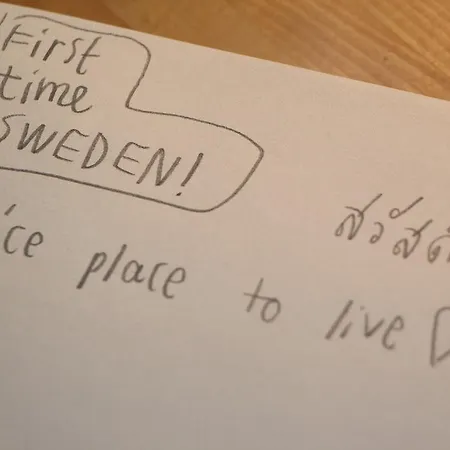 First
time
SWEDEN!
สวัสดี
ice place to live